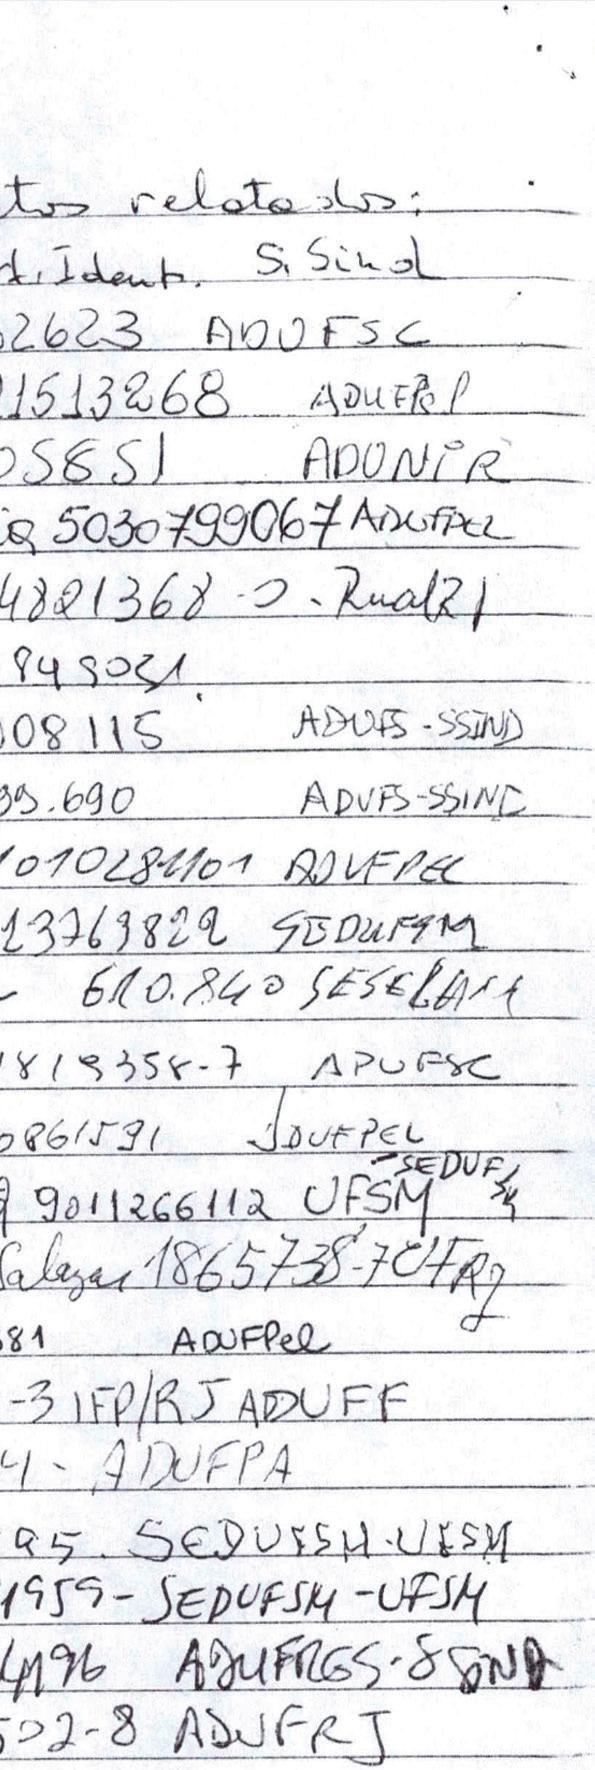 tos relatados:
t. Ident. S. Sind
62623 ADUFSC
1513268 ADUFPel
05851 ADUNIR
5030799067 ADUFPEL
4821368-0. Rural RJ
849031.
008115 ADUFS-SSIND
39.690 ADUFS-SSIND
ADUFPEL
13769822 SEDUFSM
610.840
1819358-7 APUFSC
0861591 ADUFPEL
-SEDUFSM
9011266112 UFSM
Salazar 1865738-7 UFRJ
681 ADUFPel
-3 IFP/RJ ADUFF
4- ADUFPA
95. SEDUFSM-UFSM
1959-SEDUFSM-UFSM
4196 ADUFRGS-SSIND
502-8 ADUFRJ